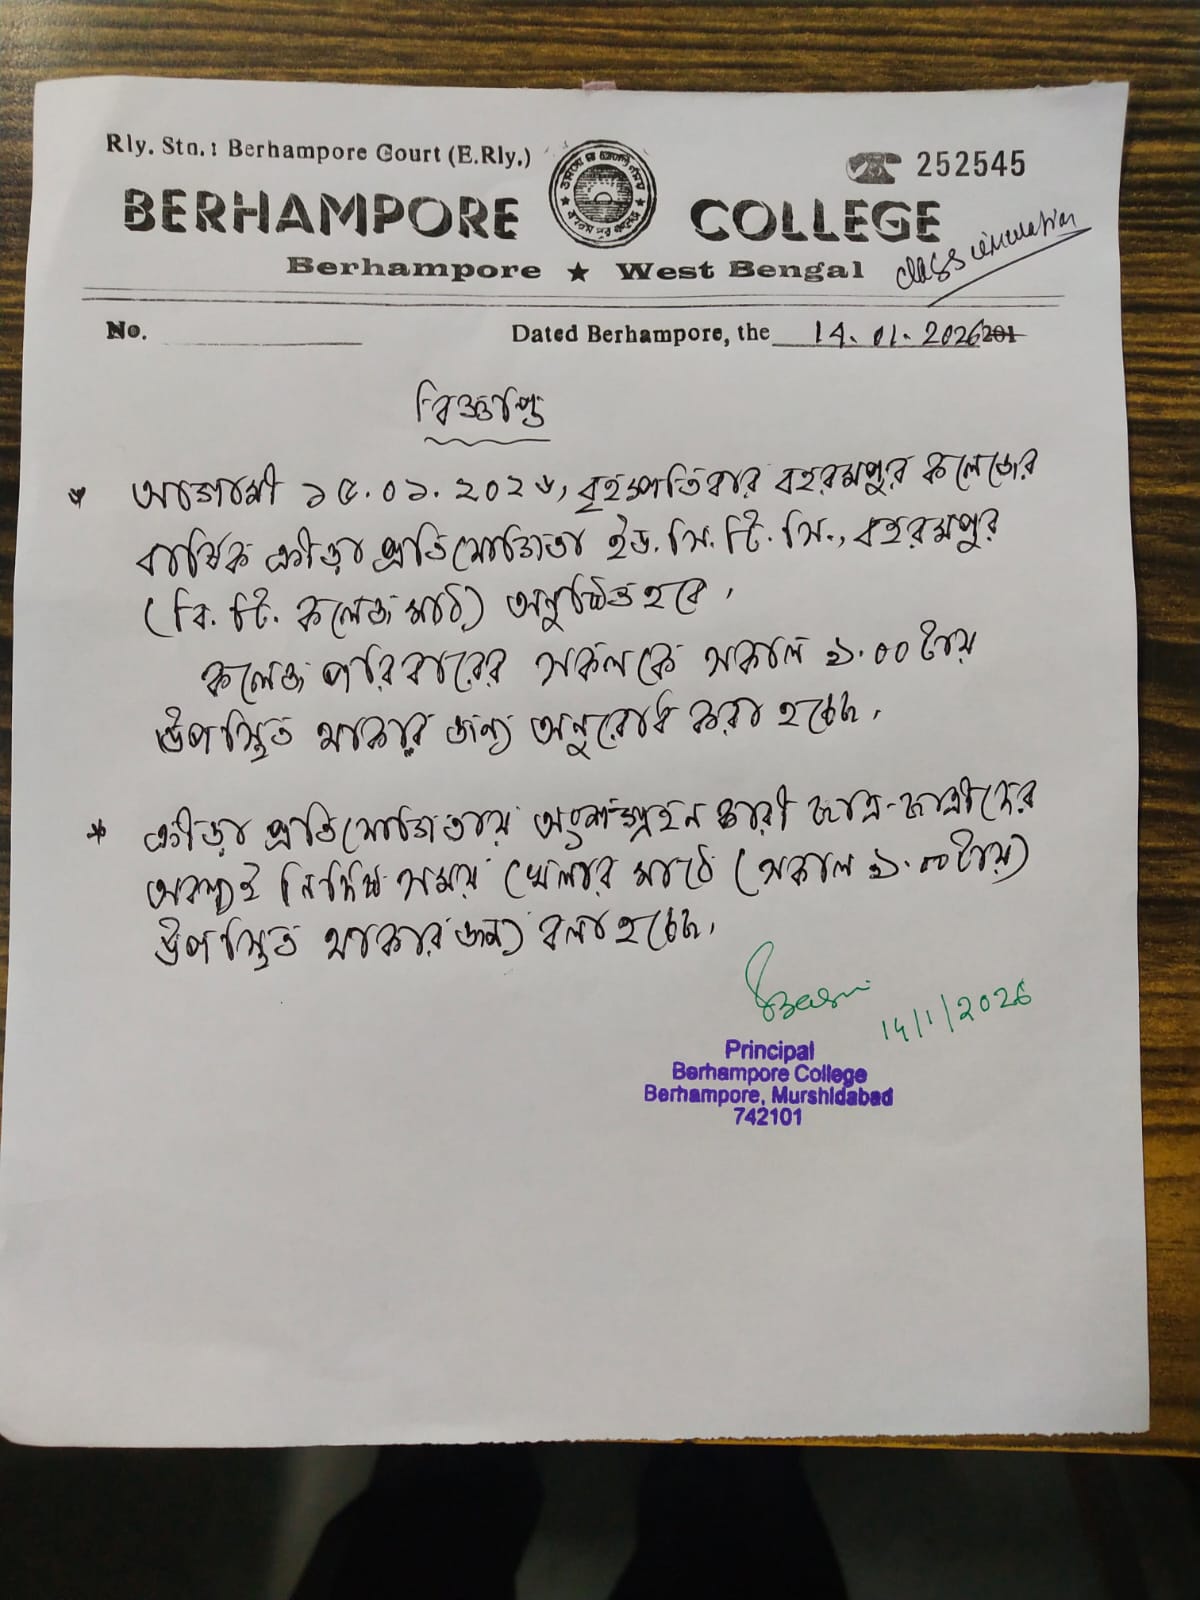 Rly. Stn. : Berhampore Court (E.Rly.)
252545
BERHAMPORE COLLEGE
Berhampore ★ West Bengal
class circulation
No.
Dated Berhampore, the 14.01.2026 201
বিজ্ঞপ্তি
* আগামী ১৫.০১.২০২৬, বৃহস্পতিবার বহরমপুর কলেজের
বার্ষিক ক্রীড়া প্রতিযোগিতা ইউ.সি.টি.সি., বহরমপুর
(বি.টি. কলেজ মাঠ) অনুষ্ঠিত হবে।
কলেজ পরিবারের সকলকে সকাল ৯.০০টায়
উপস্থিত থাকার জন্য অনুরোধ করা হচ্ছে।
* ক্রীড়া প্রতিযোগিতায় অংশগ্রহনকারী ছাত্র-ছাত্রীদের
অবশ্যই নির্দিষ্ট সময় খেলার মাঠে (সকাল ৯.০০টায়)
উপস্থিত থাকার জন্য বলা হচ্ছে।
14/1/2026
Principal
Berhampore College
Berhampore, Murshidabad
742101